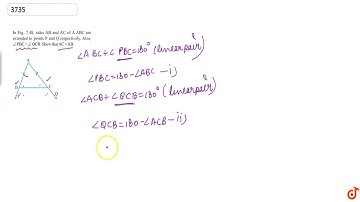 3735
In Fig. 7.48, sides AB and AC of Δ ABC are
extended to points P and Q respectively. Also,
∠ PBC < ∠ QCB. Show that AC > AB.
A
B
C
P
Q
∠ABC+∠PBC=180° (linear pair)
∠PBC=180-∠ABC - i)
∠ACB+∠QCB=180° (linear pair)
∠QCB=180-∠ACB - ii)